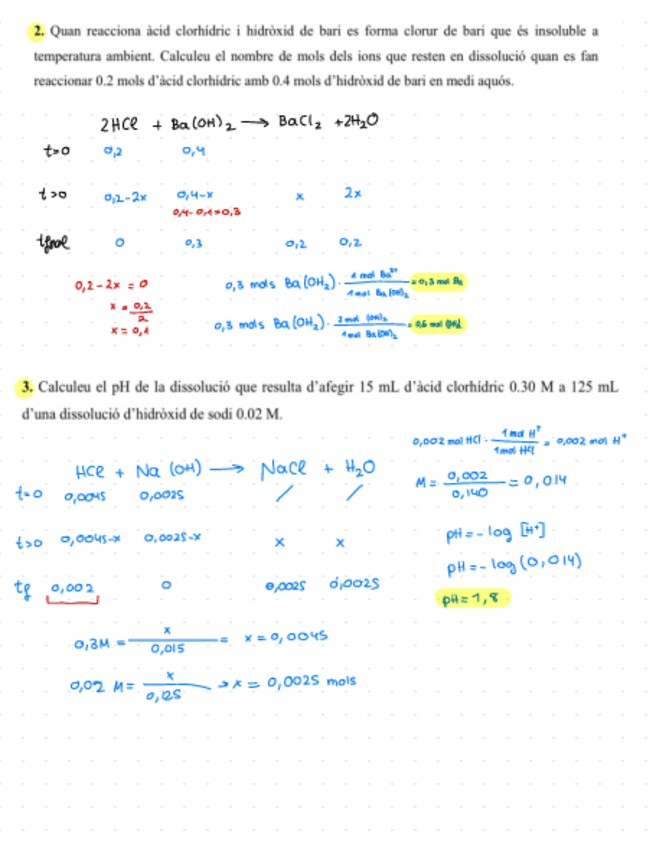 2. Quan reacciona àcid clorhídric i hidròxid de bari es forma clorur de bari que és insoluble a
temperatura ambient. Calculeu el nombre de mols dels ions que resten en dissolució quan es fan
reaccionar 0.2 mols d'àcid clorhídric amb 0.4 mols d'hidròxid de bari en medi aquós.
2HCl + Ba(OH)2 → BaCl2 + 2H2O
t=0 0,2 0,4
t>0 0,2-2x 0,4-x x 2x
0,4-0,1=0,3
tfinal 0 0,3 0,2 0,2
0,2-2x = 0
x = 0,2/2
x = 0,1
0,3 mols Ba(OH2) · 1 mol Ba2+ / 1 mol Ba(OH)2 = 0,3 mol Ba
0,3 mols Ba(OH2) · 2 mol (OH)2 / 1 mol Ba(OH)2 = 0,6 mol
3. Calculeu el pH de la dissolució que resulta d'afegir 15 mL d'àcid clorhídric 0.30 M a 125 mL
d'una dissolució d'hidròxid de sodi 0.02 M.
HCl + Na(OH) → NaCl + H2O
t=0 0,0045 0,0025 / /
t>0 0,0045-x 0,0025-x x x
tf 0,002 0 0,0025 0,0025
0,3M = x / 0,015 = x = 0,0045
0,02 M = x / 0,125 → x = 0,0025 mols
0,002 mol HCl · 1 mol H+ / 1 mol HCl = 0,002 mol H+
M = 0,002 / 0,140 = 0,014
pH = - log [H+]
pH = - log (0,014)
pH = 1,8